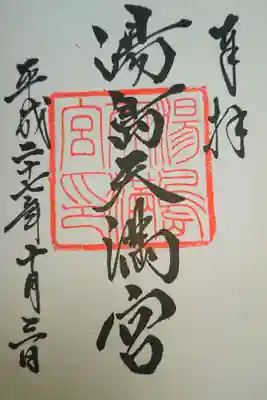 奉拝
湯島天満宮
平成二十七年十月三日
湯島天満宮印